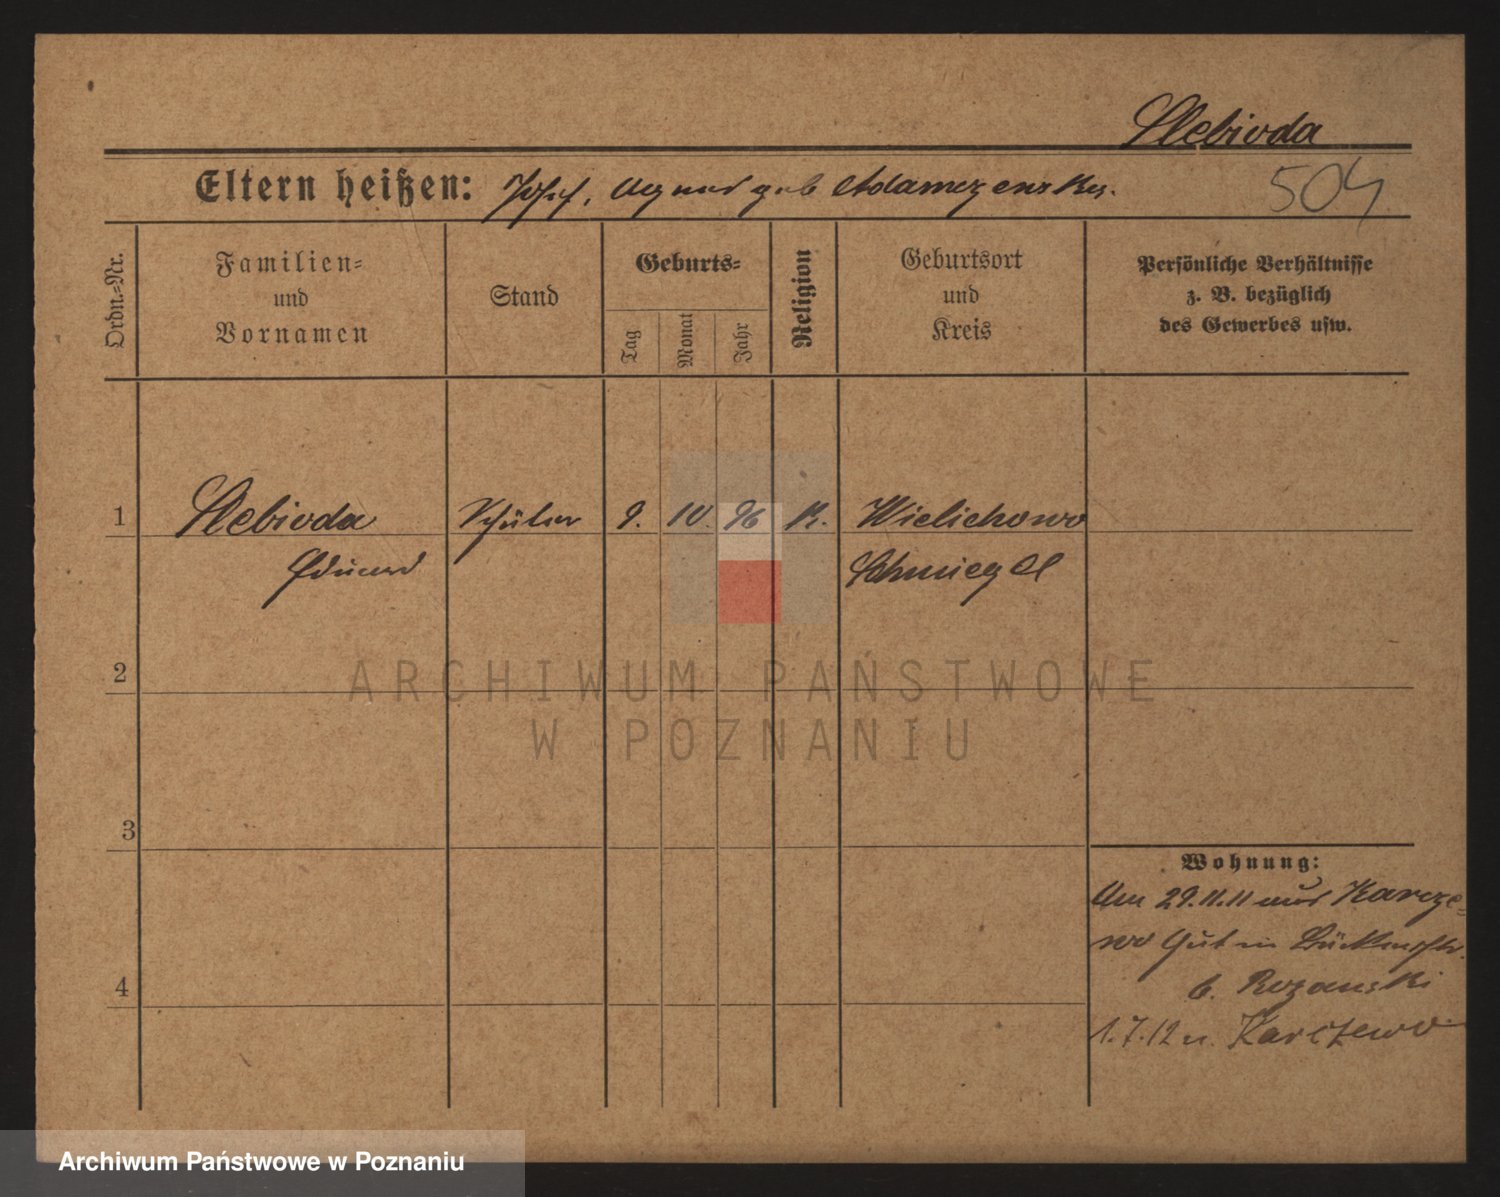 Slebioda
Eltern heißen: Josef, geb Adamczewska.
504
Ordn.=Nr.
Familien=
und
Vornamen
Stand
Geburts=
Tag
Monat
Jahr
Religion
Geburtsort
und
Kreis
Persönliche Verhältnisse
z. B. bezüglich
des Gewerbes usw.
1 Slebioda Schüler 9. 10. 96 K. Wielichowo
Eduard Schmiegel
2
ARCHIWUM PAŃSTWOWE
W POZNANIU
3
Wohnung:
Am 29.11.11 aus Karcze=
wo Gut in
4
b. Rozanski
1.7.12 n. Karczewo
Archiwum Państwowe w Poznaniu